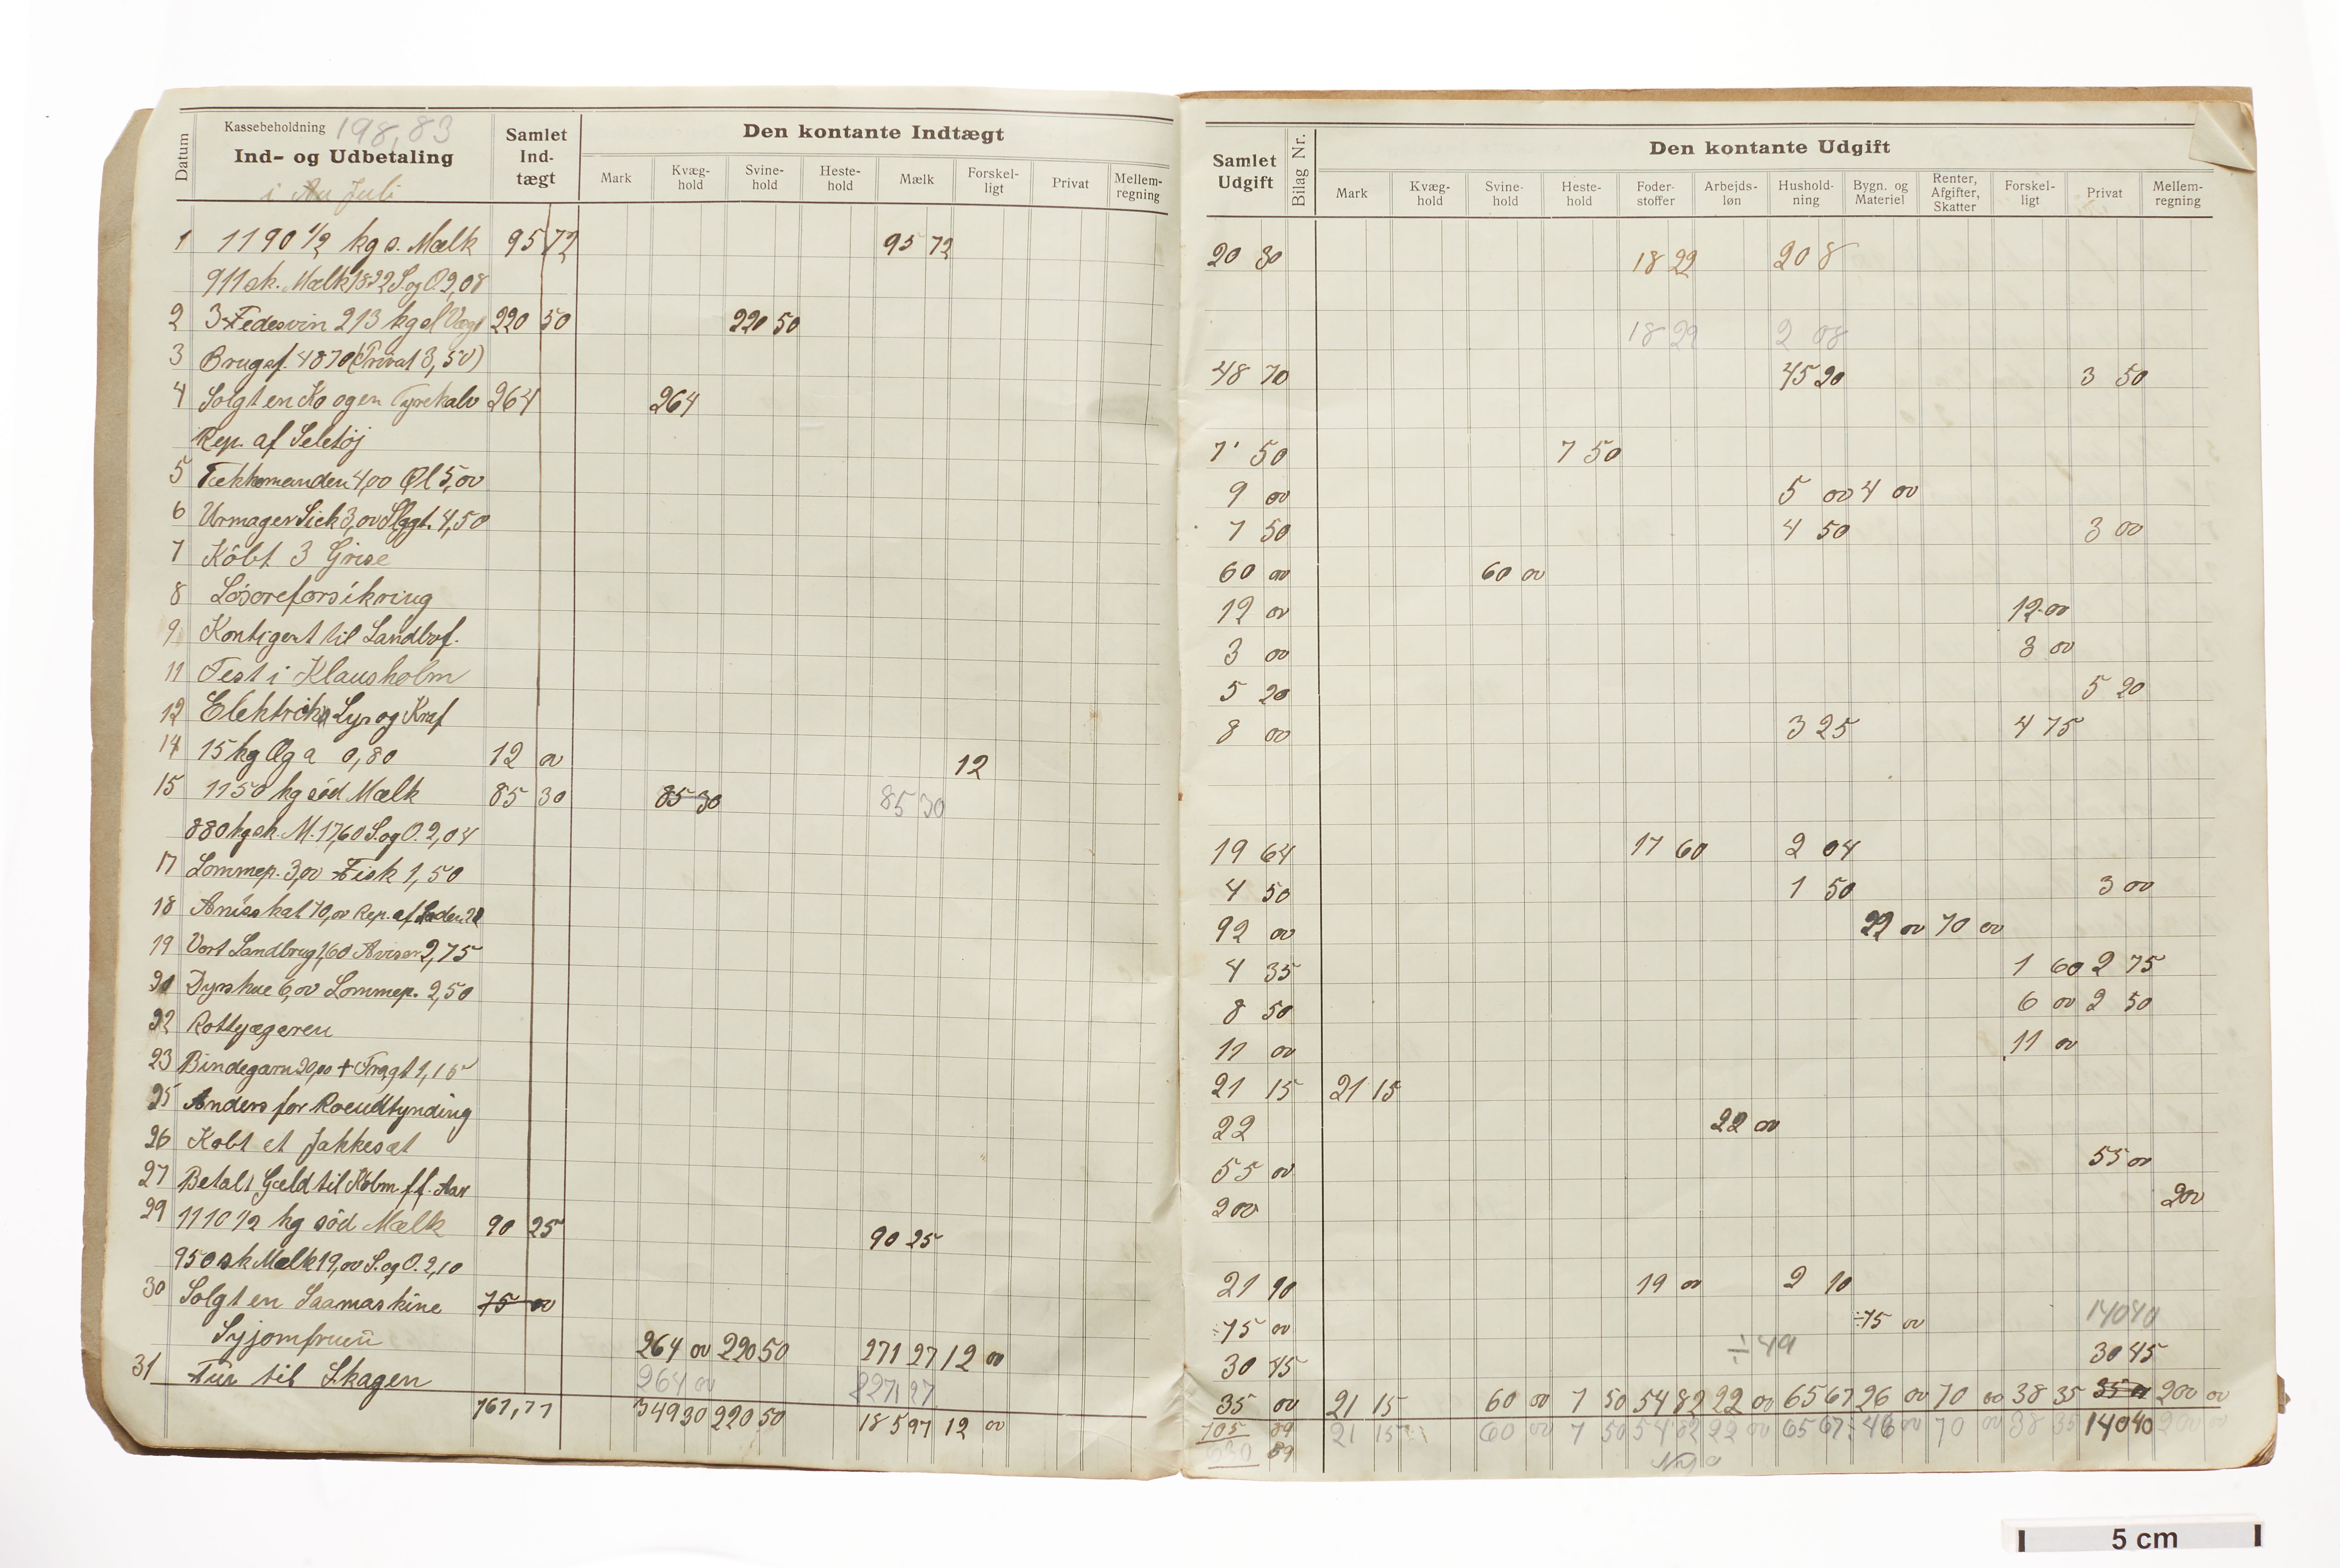 Datum
Kassebeholdning 198,83
Ind- og Udbetaling
i Juli
Samlet Ind-tægt
Den kontante Indtægt
Mark Kvæg-hold Svine-hold Heste-hold Mælk Forskel-ligt Privat Mellem-regning
Samlet Udgift
Bilag Nr.
Den kontante Udgift
Mark Kvæg-hold Svine-hold Heste-hold Foder-stoffer Arbejds-løn Hushold-ning Bygn. og Materiel Renter, Afgifter, Skatter Forskel-ligt Privat Mellem-regning
1 1190 1/2 kg s. Mælk 95 72 95 72 20 30 18 22 2 08
911 sk. Mælk 18 22 S. og O 2,08
2 3 Fedesvin 213 kg sl Vægt 220 50 220 50 18 22 2 08
3 Brugsf. 48 70 (Privat 3,50) 48 70 45 20 3 50
4 Solgt en Ko og en Tyrekalv 264 264
Rep. af Seletøj 7 50 7 50
5 Tækkemanden 4,00 Øl 5,00 9 00 5 00 4 00
6 Urmager Sick 3,00 Slagt. 4,50 7 50 4 50 3 00
7 Köbt 3 Grise 60 00 60 00
8 Lösöreforsikring 12 00 12 00
9 Kontigent til Landbof. 3 00 3 00
11 Fest i Klausholm 5 20 5 20
12 Elektrick Lys og Kraf 8 00 3 25 4 75
14 15 kg Æg a 0,80 12 00 12
15 1150 kg söd Mælk 85 30 85 30 85 30
880 kg sk. M. 17,60 S. og O. 2,04 19 64 17 60 2 04
17 Lommep. 3,00 Fisk 1,50 4 50 1 50 3 00
18 Amtsskat 70,00 Rep. af Laden 22 92 00 22 00 70 00
19 Vort Landbrug 1,60 Aviser 2,75 4 35 1 60 2 75
20 Dyrskue 6,00 Lommep. 2,50 8 50 6 00 2 50
22 Rottejægeren 11 00 11 00
23 Bindegarn 20,00 + Fragt 1,15 21 15 21 15
25 Anders for Roeudtynding 22 22 00
26 Købt et Jakkesæt 55 00 55 00
27 Betalt Gæld til Kolm. ff. Aar 200 200
29 1110 1/2 kg söd Mælk 90 25 90 25
950 sk Mælk 19,00 S. og O. 2,10 21 10 19 00 2 10
30 Solgt en Saamaskine 75 00 ÷75 00 ÷75 00 140 40
Syjomfruen 264 00 220 50 271 27 12 00 30 45 ÷49 30 45
31 Tur til Skagen 264 00 271 27 35 00 21 15 60 00 7 50 54 82 22 00 65 67 26 00 70 00 38 35 35 00 200 00
767,77 349 30 220 50 185 97 12 00 705 89 21 15 60 00 7 50 54 82 22 00 65 67 ÷48 00 70 00 38 35 140 40 200 00
630 89
5 cm